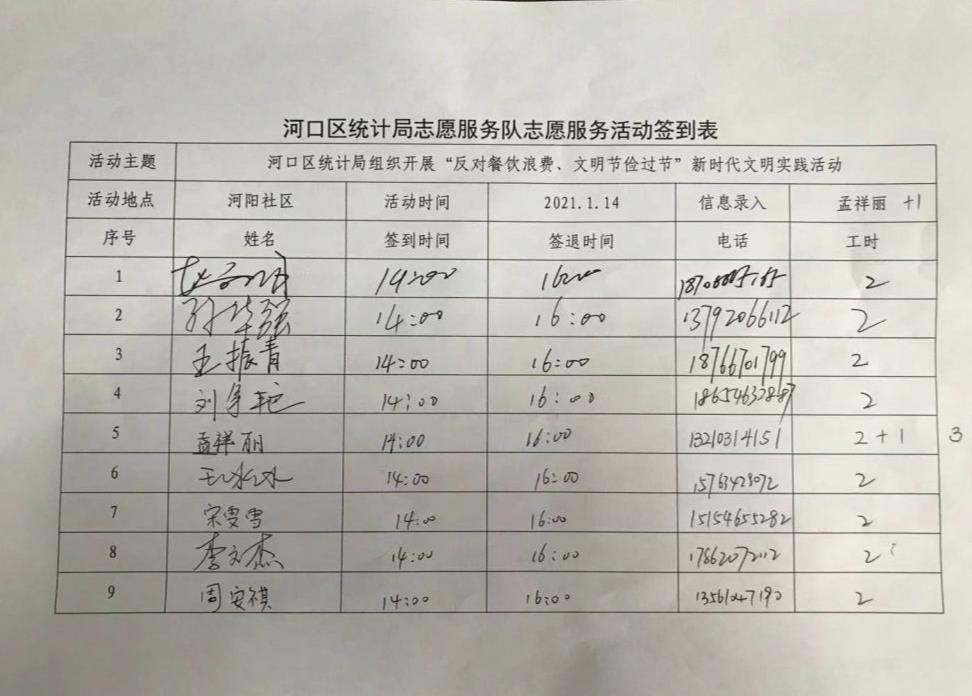 河口区统计局志愿服务队志愿服务活动签到表
活动主题 河口区统计局组织开展“反对餐饮浪费、文明节俭过节”新时代文明实践活动
活动地点 河阳社区 活动时间 2021.1.14 信息录入 孟祥丽 +1
序号 姓名 签到时间 签退时间 电话 工时
1 14:00 16:00 2
2 孙华强 14:00 16:00 13792066112 2
3 王振青 14:00 16:00 18766701799 2
4 14:00 16:00 18654632887 2
5 孟祥丽 14:00 16:00 13210314151 2+1 3
6 14:00 16:00 2
7 宋雯雪 14:00 16:00 15154655282 2
8 李文杰 14:00 16:00 17862072112 2
9 周安祺 14:00 16:00 13561047190 2